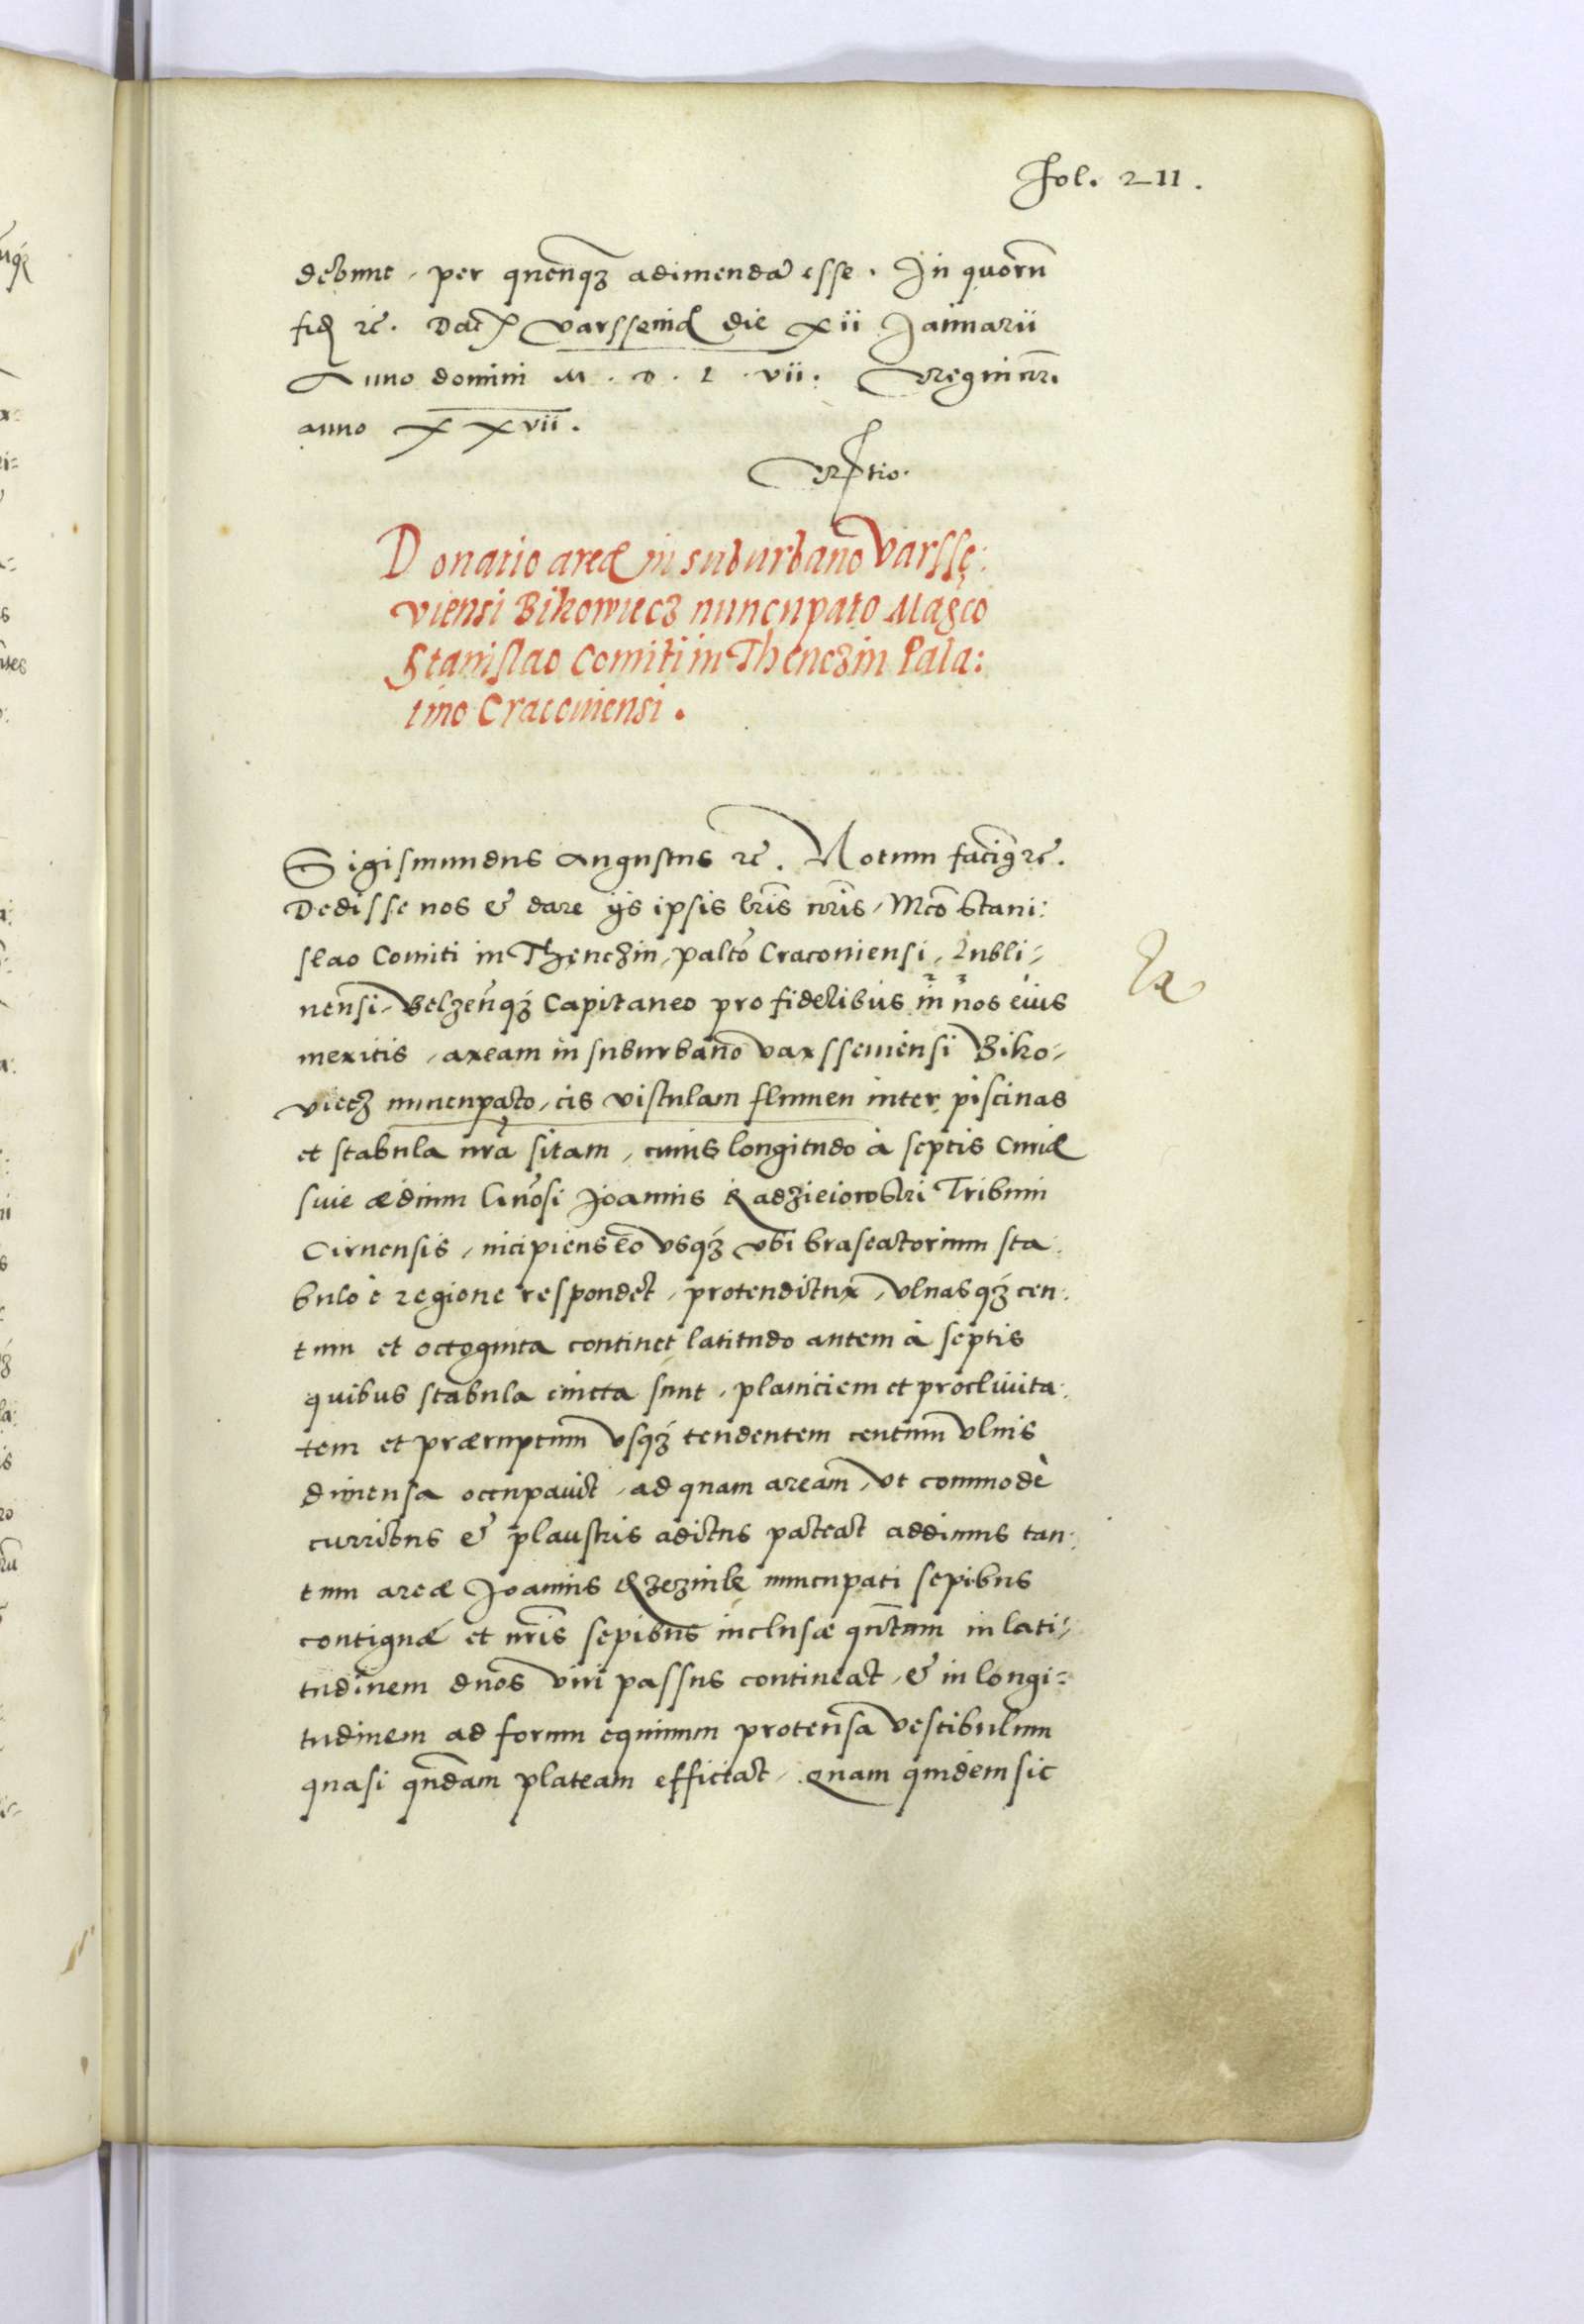 Fol. 211.
debunt, per quenq(ue) adimenda esse. In quorũ
fid(em) rc̃. Dat(um) varsseuiæ die xii Januarii
Anno domini M. D. L. vii. Regni nr̃i
anno xxvii.
Donatio areæ in suburbano Varssę:
viensi Bikowiecz nuncupato Mag̃co
Stanislao Comiti in Thenczin Pala:
tino Cracouiensi.
Sigismundus Augustus rc̃. Notum facim(us) rc̃.
Dedisse nos & dare ijs ipsis lr̃is nr̃is, Mc̃o Stani:
slao Comiti in Thenczin, palt̃o Cracouiensi, Lubli,
nensi, Belzenq(ue) Capitaneo pro fidelibus in nos eius
meritis, aream in suburbano varsseuiensi Biko,
viecz nuncupato, cis vistulam flumen inter piscinas
et stabula nr̃a sitam, cuius longitudo à septis Curiæ
siue ædium Gen̄osi Joannis Radzieiowski Tribuni
Cirnensis, incipiens eo usq(ue) ubi braseatorium sta:
bulo è regione respondet, protenditur, vlnasq(ue) cen:
tum et octoginta continet latitudo autem à septis
quibus stabula cincta sunt, planiciem et procliuita:
tem et præruptum usq(ue) tendentem centum vlnis
dimensa occupauit, ad quam aream, vt commodè
curribus & plaustris aditus pateat addimus tan:
tum areæ Joannis Rzeznik nuncupati sepibus
contiguæ et nr̃is sepibus inclusæ qn̄tum in lati,
tudinem duos viri passus contineat, & in longi=
tudinem ad forum equinum protensa vestibulum
quasi qn̄dam plateam efficiat, Quam quidem sic